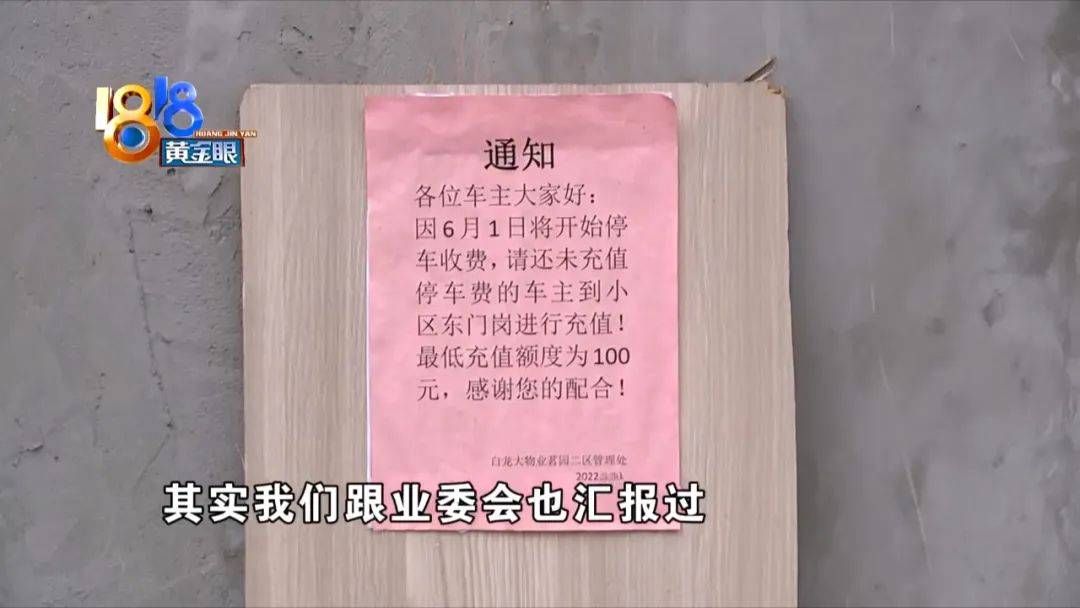 1818
HUANG JIN YAN
黄金眼
通知
各位车主大家好：
因6月1日将开始停
车收费，请还未充值
停车费的车主到小
区东门岗进行充值！
最低充值额度为100
元，感谢您的配合！
白龙大物业茗园二区管理处
2022
其实我们跟业委会也汇报过